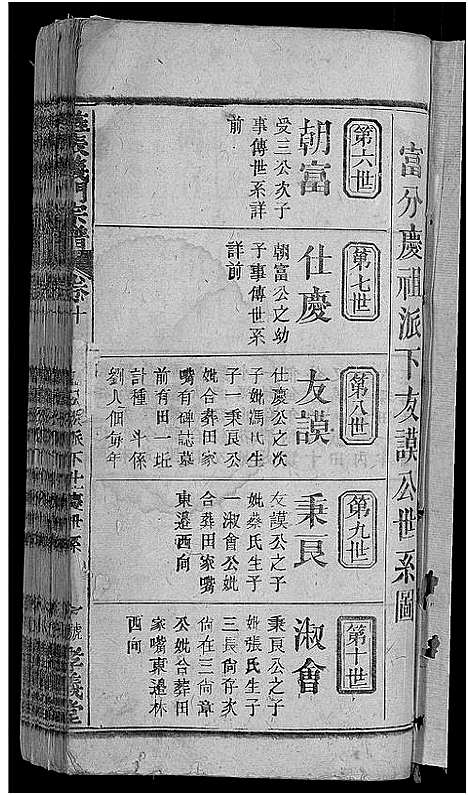 富分慶祖派下友謨公世系圖
第六世
朝富
受三公次子
事傳世系詳
前
第七世
仕慶
朝富公之幼
子事傳世系
詳前
第八世
友謨
仕慶公之次
子妣馮氏生
子一秉良公
妣合葬田家
嘴有碑誌墓
前有田一坵
計種 斗係
劉人佃每年
第九世
秉良
友謨公之子
妣蔡氏生子
一淑會公妣
合葬田家嘴
東邉西向
第十世
淑會
秉良公之子
妣張氏生子
三長尙存次
尙在三尙章
公妣合葬田
家嘴東邉林
西向
義門宗譜
卷十
派下仕慶世系
一號
孝義堂